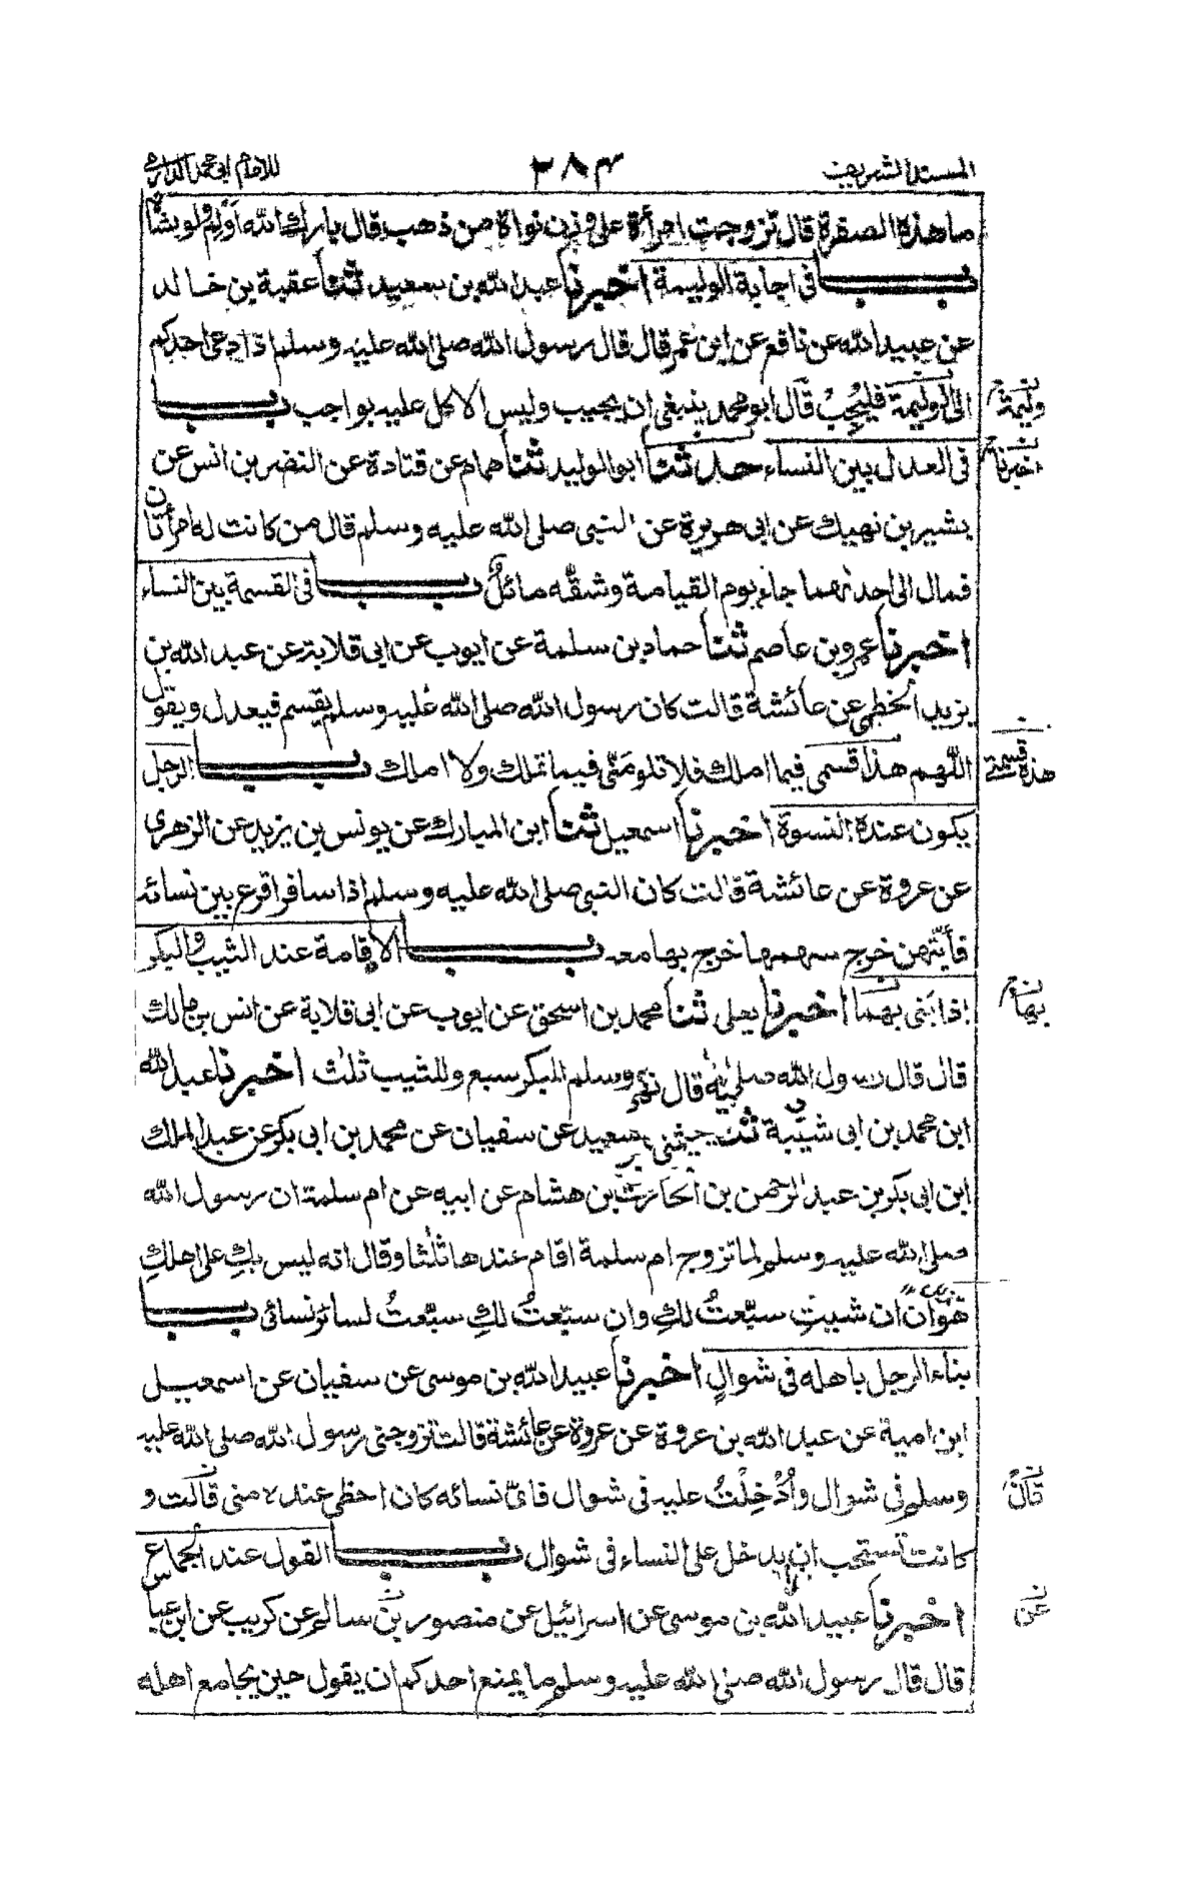 المسند الشريف
٢٨٤
للامام ابی محمد الدارمی
ما هذه الصفرة قال تزوجت امرأة علی وزن نواة من ذهب قال بارك الله اَوْلِمْ ولو بشاة
بــــاب فی اجابة الولیمة اخبرنا عبد الله بن سعید ثنا عقبة بن خالد
عن عبید الله عن نافع عن ابن عمر قال قال رسول الله صلی الله علیه وسلم اذا دعی احدكم
الی الولیمة فلیُجِبْ قَالَ ابو محمد ینبغی ان یجیب ولیس الاكل علیه بواجب بــــاب
ولیمة
فی العدل بین النساء حدثنا ابو الولید ثنا همام عن قتادة عن النضر بن انس عن
اخبرنا
بشیر بن نهیك عن ابی هریرة عن النبی صلی الله علیه وسلم قال من كانت له امرأتان
فمال الی احدٰهما جاء یوم القیامة وشقُّه مائلٌ بــــاب فی القسمة بین النساء
اخبرنا عمرو بن عاصم ثنا حماد بن سلمة عن ایوب عن ابی قلابة عن عبد الله بن
یزید الخطمی عن عائشة قالت كان رسول الله صلی الله علیه وسلم یقسم فیعدل ویقول
اللّٰهم هذا قسمی فیما املك فلا تلومَنّی فیما تملك ولا املك بــــاب الرجل
هذه قسمتی
یكون عنده النسوة اخبرنا اسمعیل ثنا ابن المبارك عن یونس بن یزید عن الزهری
عن عروة عن عائشة قالت كان النبی صلی الله علیه وسلم اذا سافر اقرع بین نسائه
فأیّتهن خرج سهمها خرج بها معه بــــاب الاقامة عند الثیب والبكر
اذا بَنی بهما اخبرنا یعلی ثنا محمد بن اسحق عن ایوب عن ابی قلابة عن انس بن مالك
بها
قال قال رسول الله صلی علیه قال وسلم للبكر سبع وللثیب ثلٰث اخبرنا عبد الله
ابن محمد بن ابی شیبة ثنا یحیی بن سعید عن سفیان عن محمد بن ابی بكر عن عبد الملك
ابن ابی بكر بن عبد الرحمن بن الحارث بن هشام عن ابیه عن ام سلمة ان رسول الله
صلی الله علیه وسلم لما تزوج ام سلمة اقام عندها ثلٰثا وقال انه لیس بكِ علی اهلكِ
هَوَان ان شیٔتِ سبّعتُ لكِ وان سبّعتُ لكِ سبّعتُ لسائر نسائی بــــاب
بناء الرجل باهله فی شوالٍ اخبرنا عبید الله بن موسی عن سفیان عن اسمعیل
ابن امیة عن عبد الله بن عروة عن عروة عن عائشة قالت تزوجنی رسول الله صلی الله علیه
وسلم فی شوال واُدْخِلْتُ علیه فی شوال فایّ نسائه كان احظی عنده منی قالت و
قال
كانت تستحب ان یدخل علی النساء فی شوال بــــاب القول عند الجماع
اخبرنا عبید الله بن موسی عن اسرائیل عن منصور بن سالم عن كریب عن ابن عباس
عن
قال قال رسول الله صلی الله علیه وسلم ما یمنع احدكم ان یقول حین یجامع اهله